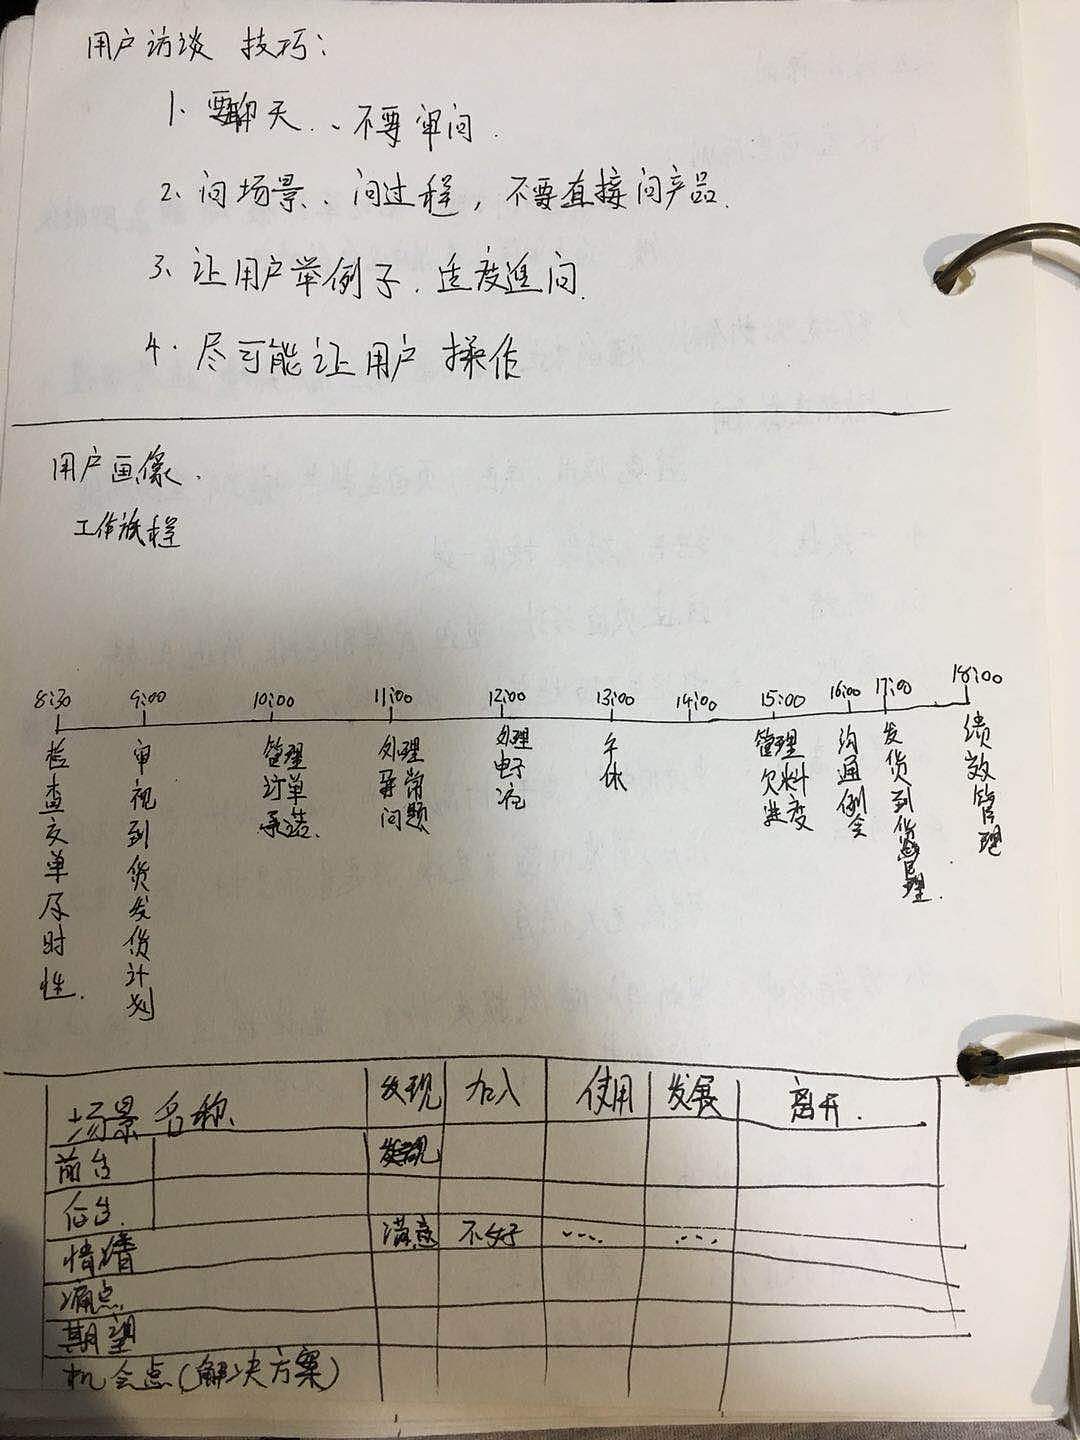 用户访谈 技巧：
1、要聊天、不要审问.
2、问场景、问过程，不要直接问产品.
3、让用户举例子、适度追问.
4、尽可能让用户 操作
用户画像.
工作流程
8:30 9:00 10:00 11:00 12:00 13:00 14:00 15:00 16:00 17:00 18:00
检查交单及时性.
审视到货发货计划
管理订单承诺.
处理异常问题
处理电子
午休
管理欠料进度
沟通例会
发货到货管理.
绩效管理
场景名称 发现 加入 使用 发展 离开.
前台
后台.
情绪 满意 不好 .... ....
痛点
期望
机会点(解决方案)